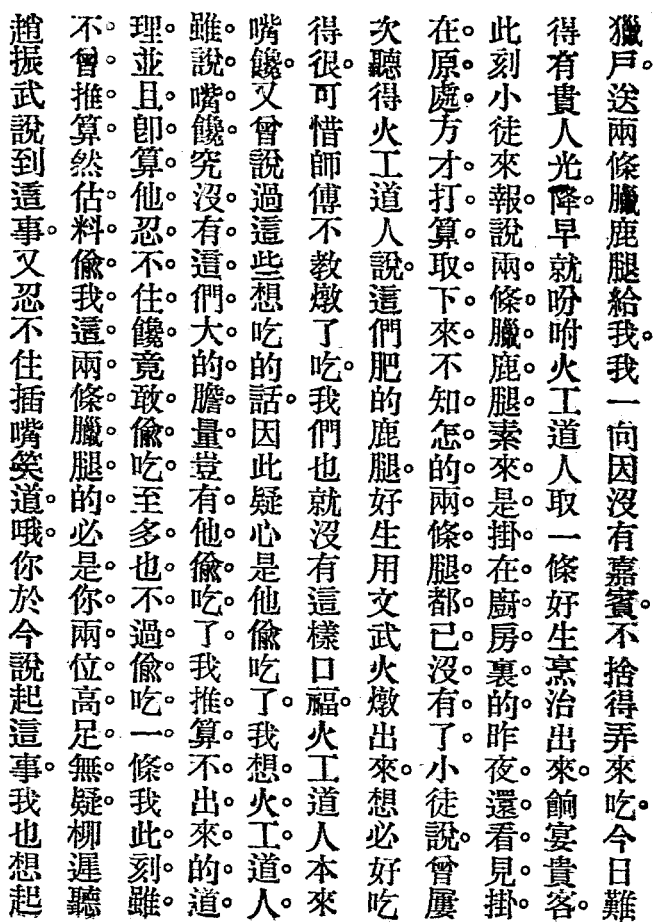 獵戶。送兩條臘鹿腿給我。我一向因沒有嘉賓。不捨得弄來吃。今日難
得有貴人光降。早就吩咐火工道人取一條好生烹治出來。餉宴貴客。
此刻小徒來報。說兩條臘鹿腿。素來是掛在廚房裏的。昨夜還看見掛
在原處。方才打算取下來。不知怎的。兩條腿都已沒有了。小徒說。曾屢
次聽得火工道人說。這們肥的鹿腿。好生用文武火燉出來。想必好吃
得很。可惜師傅不教燉了吃。我們也就沒有這樣口福。火工道人本來
嘴饞。又曾說過這些想吃的話。因此疑心是他偷吃了。我想火工道人
雖說嘴饞。究沒有這們大的膽量。豈有他偷吃了。我推算不出來的道
理。並且即算他忍不住饞。竟敢偷吃。至多也不過偷吃一條。我此刻雖
不曾推算。然估料偷我這兩條臘腿的。必是你兩位高足無疑。柳遲聽
趙振武說到這事。又忍不住插嘴笑道。哦。你於今說起這事。我也想起